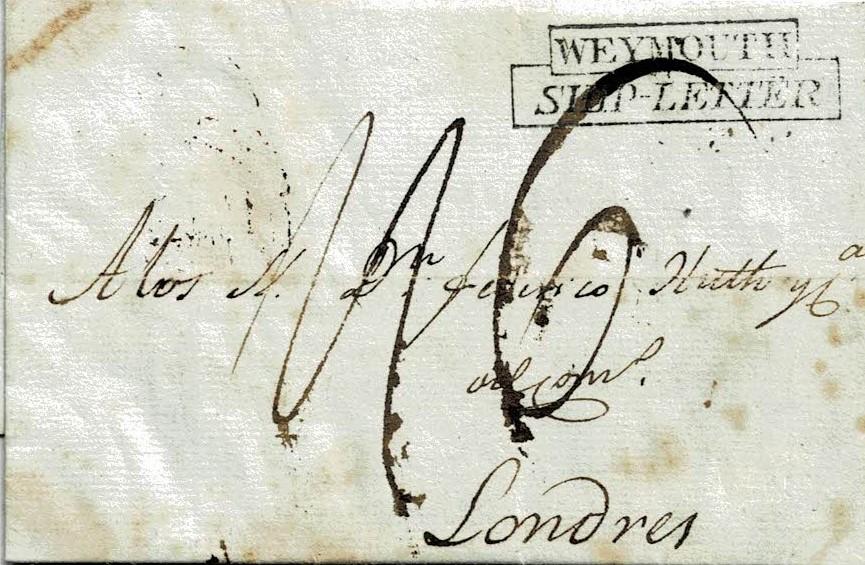 WEYMOUTH
SHIP-LETTER
A los S. D.ⁿ Federico Huth y Cª
del com.º
Londres